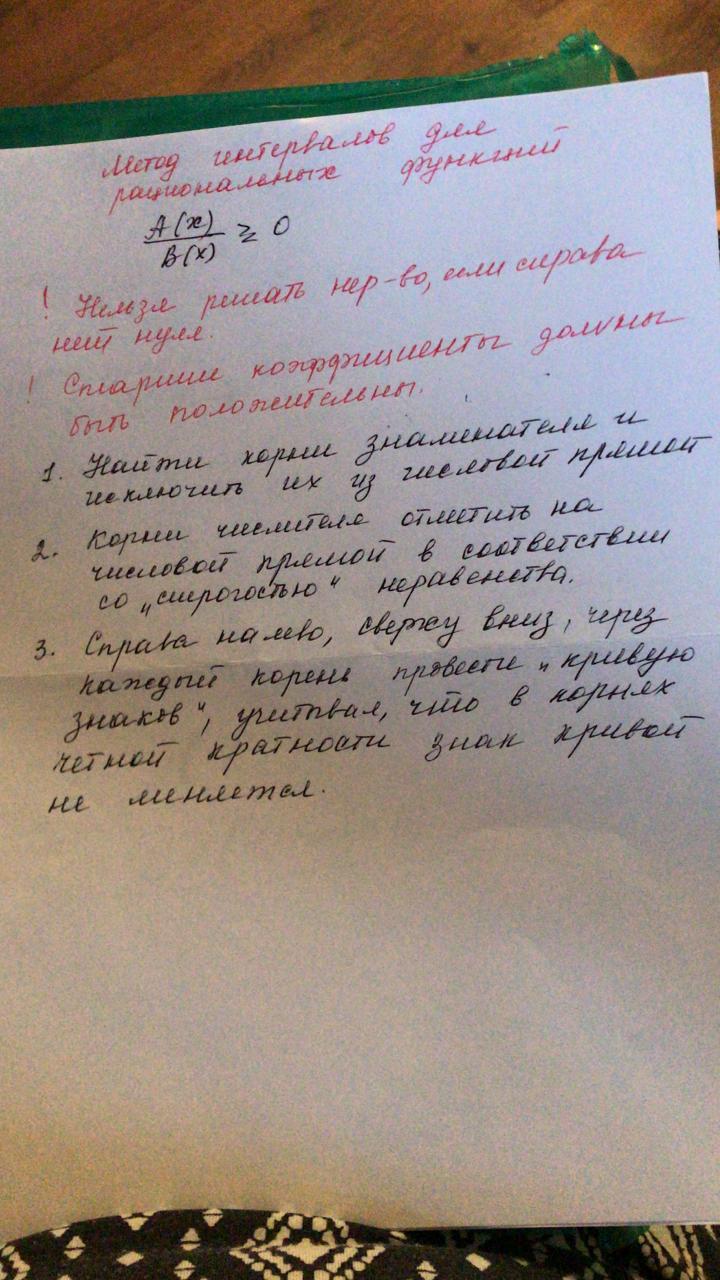 Метод интервалов для
рациональных функций
A(x)
B(x) ≥ 0
! Нельзя решать нер-во, если справа
нет нуля.
! Старшие коэффициенты должны
быть положительны.
1. Найти корни знаменателя и
исключить их из числовой прямой
2. Корни числителя отметить на
числовой прямой в соответствии
со „строгостью" неравенства.
3. Справа налево, сверху вниз, через
каждый корень провести „кривую
знаков", учитывая, что в корнях
четной кратности знак кривой
не меняется.